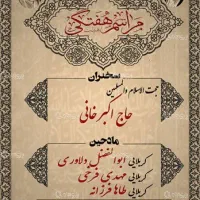 مراسم هفتگی
سخنران
حجت الاسلام والمسلمین
حاج اکبر خانی
مادحین
کربلایی ابوالفضل دلاوری
کربلایی مهدی فرخی
کربلایی طاها فرزانه